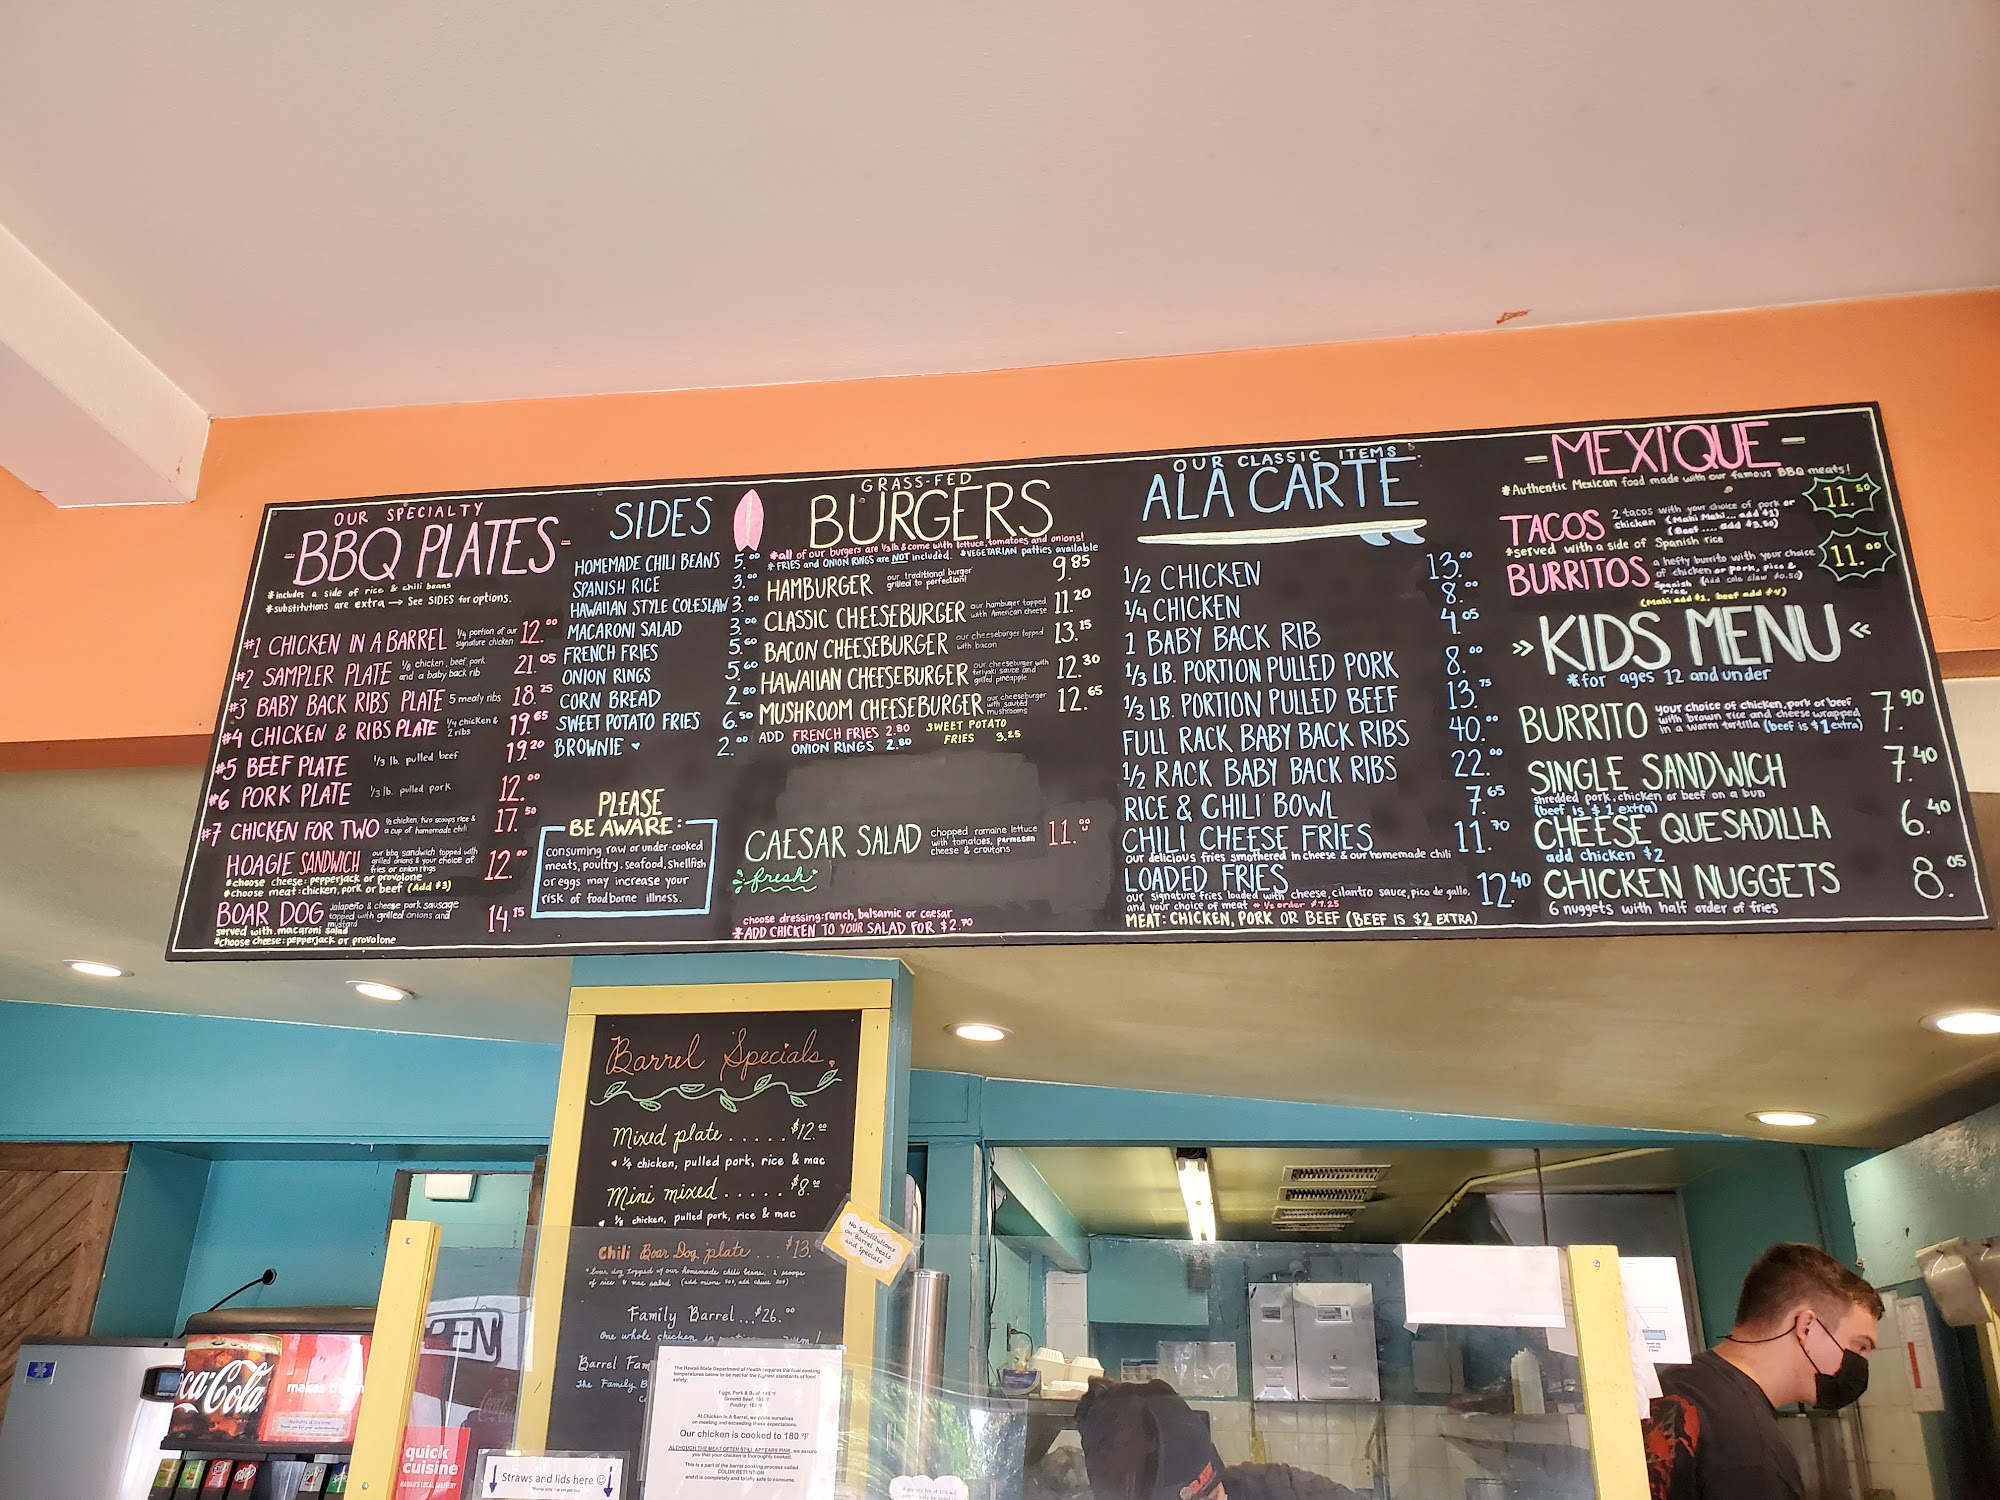 OUR SPECIALTY
-BBQ PLATES-
*includes a side of rice & chili beans
*substitutions are extra → See SIDES for options.
#1 CHICKEN IN A BARREL 1/4 portion of our signature chicken 12.00
#2 SAMPLER PLATE 1/8 chicken, beef, pork and a baby back rib 21.05
#3 BABY BACK RIBS PLATE 5 meaty ribs 18.25
#4 CHICKEN & RIBS PLATE 1/4 chicken & 2 ribs 19.65
#5 BEEF PLATE 1/3 lb. pulled beef 19.20
#6 PORK PLATE 1/3 lb. pulled pork 12.00
#7 CHICKEN FOR TWO 1/2 chicken, two scoops rice & a cup of homemade chili 17.50
HOAGIE SANDWICH our bbq sandwich topped with grilled onions & your choice of fries or onion rings 12.00
*choose cheese: pepperjack or provolone
*choose meat: chicken, pork or beef (Add $3)
BOAR DOG Jalapeño & cheese pork sausage topped with grilled onions and mustard 14.15
served with macaroni salad
*choose cheese: pepperjack or provolone
SIDES
HOMEMADE CHILI BEANS 5.00
SPANISH RICE 3.00
HAWAIIAN STYLE COLESLAW 3.00
MACARONI SALAD 3.00
FRENCH FRIES 5.60
ONION RINGS 5.60
CORN BREAD 2.80
SWEET POTATO FRIES 6.50
BROWNIE 2.00
PLEASE
BE AWARE:
consuming raw or under-cooked
meats, poultry, seafood, shellfish
or eggs may increase your
risk of foodborne illness.
GRASS-FED
BURGERS
*all of our burgers are 1/3 lb & come with lettuce, tomatoes and onions!
*FRIES and ONION RINGS are NOT included. *VEGETARIAN patties available
HAMBURGER our traditional burger grilled to perfection! 9.85
CLASSIC CHEESEBURGER our hamburger topped with American cheese 11.20
BACON CHEESEBURGER our cheeseburger topped with bacon 13.15
HAWAIIAN CHEESEBURGER our cheeseburger with teriyaki sauce and grilled pineapple 12.30
MUSHROOM CHEESEBURGER our cheeseburger with sautéed mushrooms 12.65
ADD FRENCH FRIES 2.80 SWEET POTATO
ONION RINGS 2.80 FRIES 3.25
CAESAR SALAD chopped romaine lettuce with tomatoes, parmesan cheese & croutons 11.00
fresh
choose dressing: ranch, balsamic or caesar
*ADD CHICKEN TO YOUR SALAD FOR $2.70
OUR CLASSIC ITEMS
ALA CARTE
1/2 CHICKEN 13.00
1/4 CHICKEN 8.00
1 BABY BACK RIB 4.05
1/3 LB. PORTION PULLED PORK 8.00
1/3 LB. PORTION PULLED BEEF 13.75
FULL RACK BABY BACK RIBS 40.00
1/2 RACK BABY BACK RIBS 22.00
RICE & CHILI BOWL 7.65
CHILI CHEESE FRIES 11.70
our delicious fries smothered in cheese & our homemade chili
LOADED FRIES 12.40
our signature fries loaded with cheese, cilantro sauce, pico de gallo,
and your choice of meat *1/2 order $7.25
MEAT: CHICKEN, PORK OR BEEF (BEEF IS $2 EXTRA)
-MEXI'QUE-
*Authentic Mexican food made with our famous BBQ meats!
TACOS 2 tacos with your choice of pork or chicken (Mahi Mahi... add $1) (Beef .... add $3.50) 11.50
*served with a side of Spanish rice
BURRITOS a hefty burrito with your choice of chicken or pork, rice & Spanish rice (Add cole slaw $0.50) 11.00
(Mahi add $1, beef add $4)
»KIDS MENU«
*for ages 12 and under
BURRITO your choice of chicken, pork or beef with brown rice and cheese wrapped in a warm tortilla (beef is $1 extra) 7.90
SINGLE SANDWICH 7.40
shredded pork, chicken or beef on a bun
(beef is $1 extra)
CHEESE QUESADILLA 6.40
add chicken $2
CHICKEN NUGGETS 8.05
6 nuggets with half order of fries
Barrel Specials
Mixed plate ..... $12.00
1/4 chicken, pulled pork, rice & mac
Mini mixed ..... $8.00
1/8 chicken, pulled pork, rice & mac
Chili Boar Dog plate ... $13.
*boar dog topped of our homemade chili beans, 2 scoops
of rice & mac salad (add onions 50¢, add cheese 50¢)
Family Barrel... $26.00
One whole chicken in
Barrel Fam
The Family B
No Substitutions
on Barrel Deals
and Specials
The Hawaii State Department of Health requires the final cooking
temperatures below to be met for the highest standards of food
safety:
Eggs, Pork & Beef: 145 °F
Ground Beef: 155 °F
Poultry: 165 °F
At Chicken In A Barrel, we pride ourselves
on meeting and exceeding these expectations.
Our chicken is cooked to 180 °F
ALTHOUGH THE MEAT OFTEN STILL APPEARS PINK, we assure
you that your chicken is thoroughly cooked.
This is a part of the barrel cooking process called
COLOR RETENTION
and it is completely and totally safe to consume.
Coca-Cola
makes
quick
cuisine
Straws and lids here